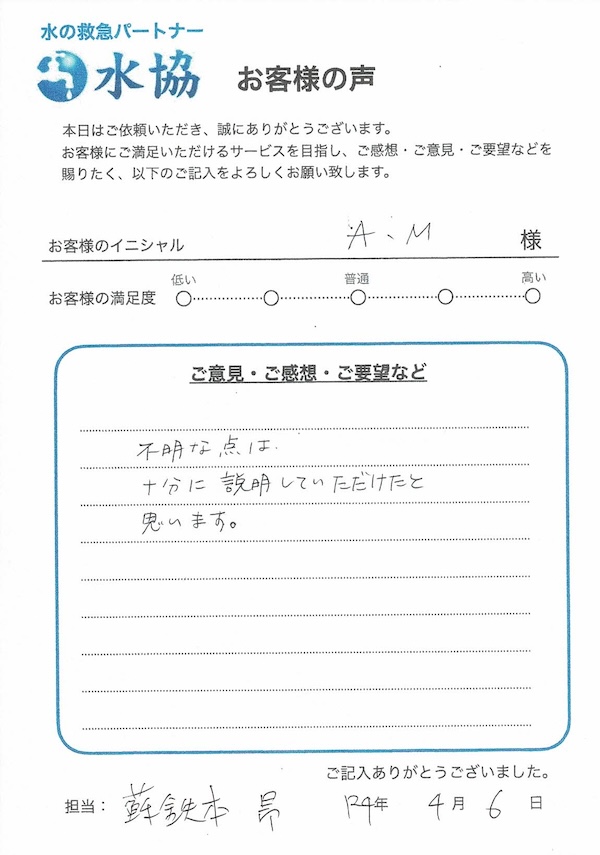 水の救急パートナー
水協 お客様の声
本日はご依頼いただき、誠にありがとうございます。
お客様にご満足いただけるサービスを目指し、ご感想・ご意見・ご要望などを
賜りたく、以下のご記入をよろしくお願い致します。
お客様のイニシャル A、M 様
低い 普通 高い
お客様の満足度
ご意見・ご感想・ご要望など
不明な点は、
十分に説明していただけたと
思います。
ご記入ありがとうございました。
担当: 蘇鉄本 昂 R4年 4月 6日